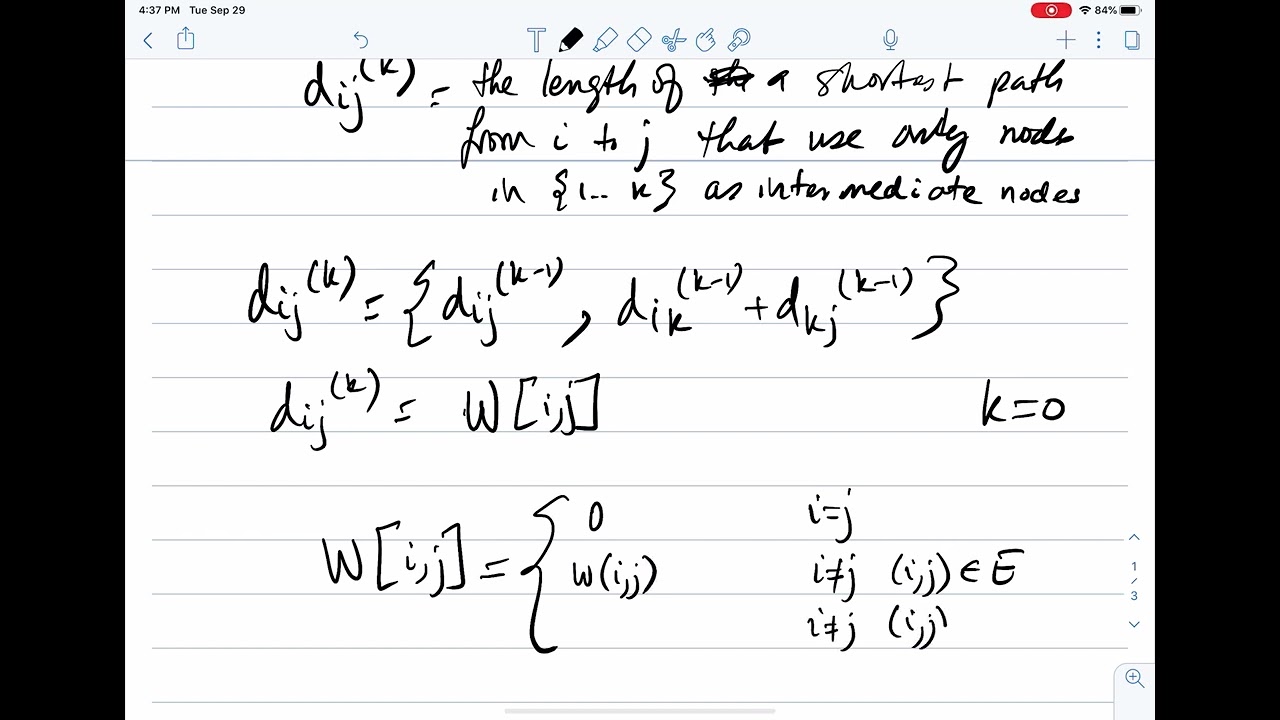 4:37 PM Tue Sep 29
84%
dij^(k) = the length of a shortest path
from i to j that use only nodes
in {1.. k} as intermediate nodes
dij^(k) = { dij^(k-1) , dik^(k-1) + dkj^(k-1) }
dij^(k) = W[i,j] k=0
W[i,j] = { 0 i=j
w(i,j) i≠j (i,j) ∈ E
i≠j (i,j)
1/3